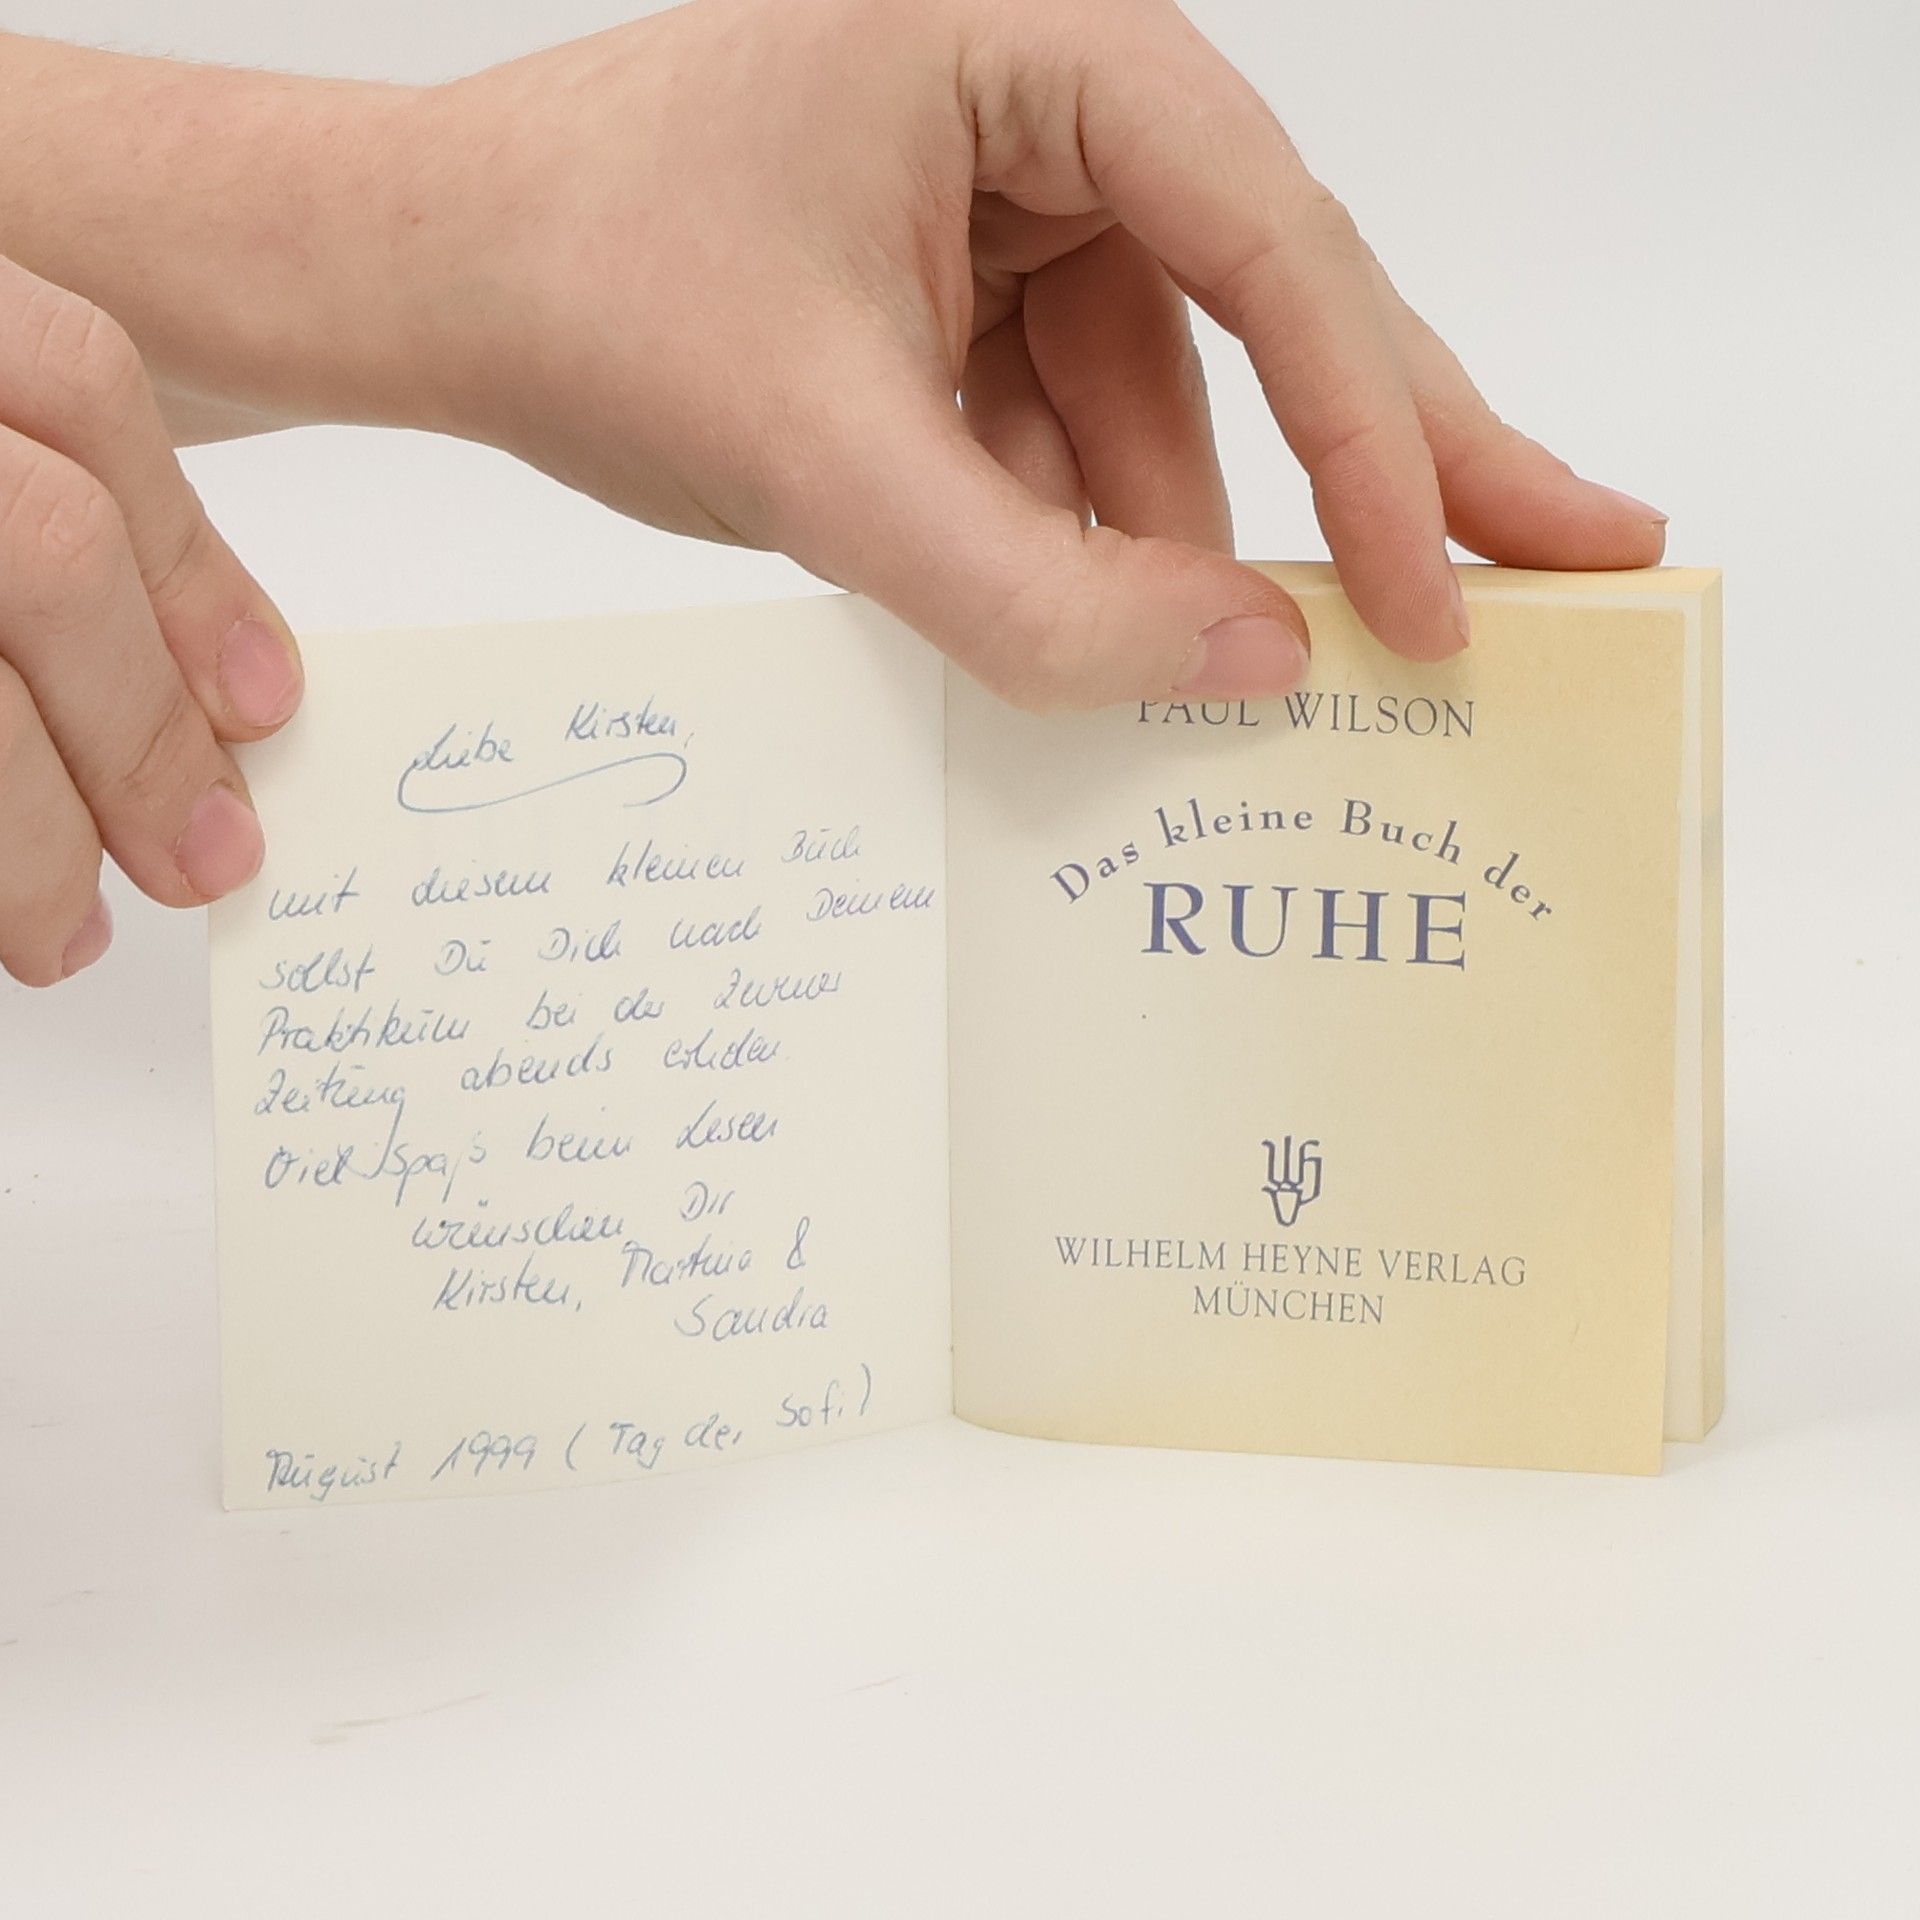 Liebe Kirsten,
mit diesem kleinen Buch
sollst Du Dich nach Deinem
Praktikum bei der
Zeitung abends erholen.
Viel Spaß beim Lesen
wünschen Dir
Kirsten, Martina &
Sandra
August 1999 (Tag der Sofi)
PAUL WILSON
Das kleine Buch der
RUHE
WILHELM HEYNE VERLAG
MÜNCHEN